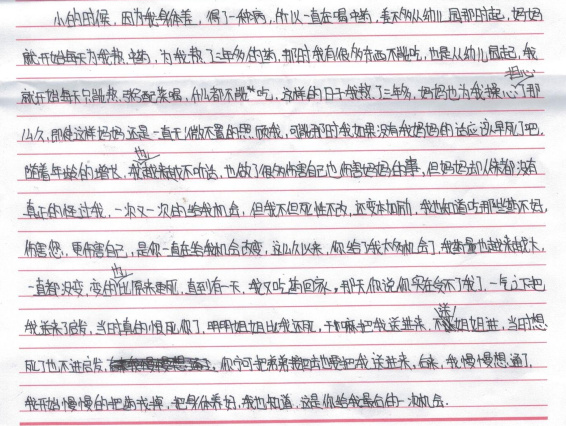 小的时候，因为我身体差，得了一种病，所以一直在喝中药，差不多从幼儿园那时起，妈妈
就开始每天为我熬中药，为我熬了三年多的药，那时我有很多东西不能吃，也是从幼儿园起，我
就开始每天只能熬 配菜喝，什么都不能吃，这样的日子我熬了三年多，妈妈也为我操心担心了那
么久，即使这样妈妈还是一直无微不置的照顾我，可能那时我如果没有我妈妈的话应该早死了吧，
随着年龄的增长，我也越来越不听话，也做了很多伤害自己也伤害妈妈的事，但妈妈却从来都没有
真正的怪过我，一次又一次的给我机会，但我不但死性不改，还变本加厉，我也知道吃那些药不好，
伤害您，更伤害自己，是你一直在给我机会改变，这么久以来，你给了我太多机会了，我药量也越来越大，
一直都没变，变的也比原来更死，直到有一天，我又吃药回家，那天你说你实在管不了我了，一气之下把
我送来了启发，当时真的恨死你了，明明姐姐比我还死，干嘛把我送进来，不送姐姐进，当时想
死了也不进启发，你宁可把弟弟 也要把我送进来，后来，我慢慢想通了，
我开始慢慢的把药戒掉，把身体养好，我也知道，这是你给我最后的一次机会．